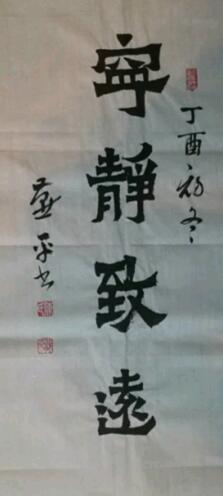 寧靜致遠
丁酉初冬
燕平书